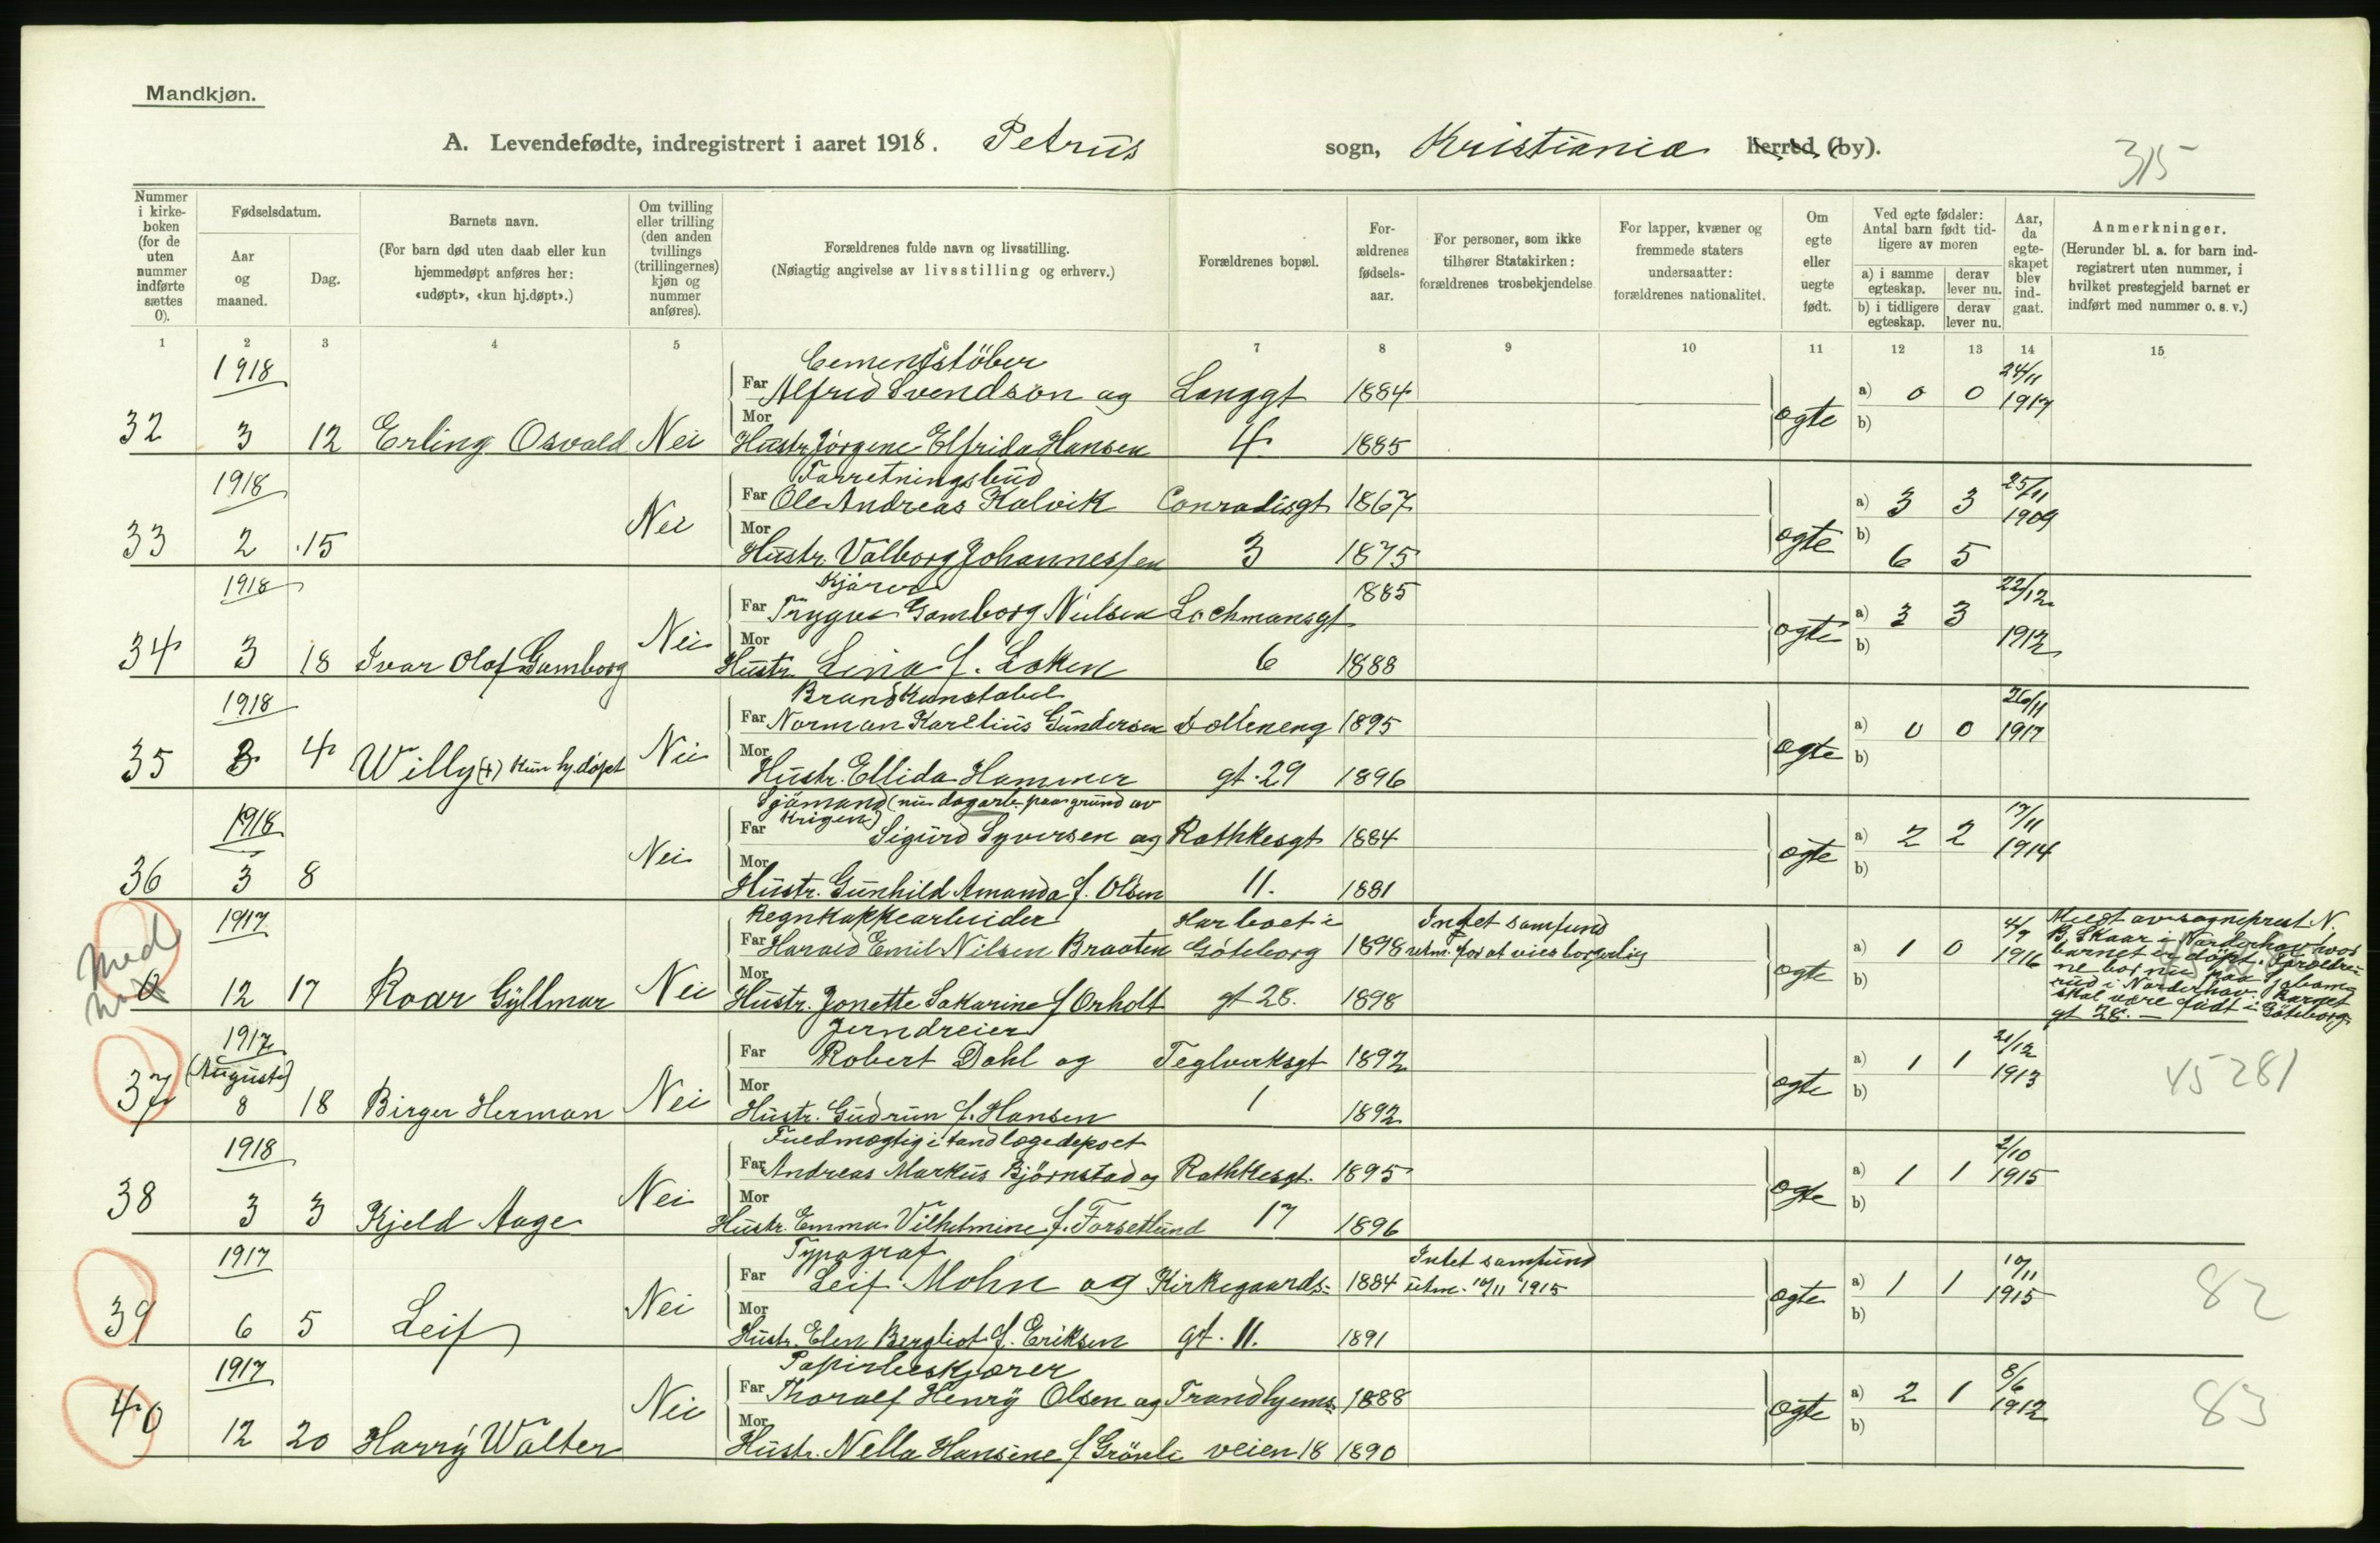 Mandkjøn.
A. Levendefødte, indregistrert i aaret 1918. Petrus sogn, Kristiania herred (by).
315
Nummer i kirkeboken (for de uten nummer indførte sættes 0).
Fødselsdatum.
Aar og maaned.
Dag.
Barnets navn.
(For barn død uten daab eller kun hjemmedøpt anføres her: «udøpt», «kun hj.døpt».)
Om tvilling eller trilling (den anden tvillings (trillingernes) kjøn og nummer anføres).
Forældrenes fulde navn og livsstilling.
(Nøiagtig angivelse av livsstilling og erhverv.)
Forældrenes bopæl.
For-ældrenes fødsels-aar.
For personer, som ikke tilhører Statskirken: forældrenes trosbekjendelse
For lapper, kvæner og fremmede staters undersaatter: forældrenes nationalitet.
Om egte eller uegte født.
Ved egte fødsler: Antal barn født tid-ligere av moren
a) i samme egteskap. derav lever nu.
b) i tidligere egteskap. derav lever nu.
Aar, da egte-skapet blev ind-gaat.
Anmerkninger.
(Herunder bl. a. for barn ind-registrert uten nummer, i hvilket prestegjeld barnet er indført med nummer o. s. v.)
1 2 3 4 5 6 7 8 9 10 11 12 13 14 15
1918 Cementstöber 24/11
Far Alfred Svendsen og Langgt 1884 a) 0 0 1917
32 3 12 Erling Osvald Nei Mor Hustr. Jörgine Elfrida Hansen 4 1885 egte b)
1918 Forretningsbud 25/11
Far Ole Andreas Kalvik Conradisgt 1867 a) 3 3 1909
33 2 15 Nei Mor Hustr. Valborg Johannessen 3 1875 egte b) 6 5
1918 Kjörer 1885 22/12
Far Trygve Gamborg Nielsen Lochmansgt a) 3 3 1912
34 3 18 Ivar Olaf Gamborg Nei Mor Hustr. Lina f. Loken 6 1888 egte b)
1918 Brandkonstabel 26/11
Far Norman Karelius Gundersen Dolleneng 1895 a) 0 0 1917
35 3 4 Willy (+) kun hj.døpt Nei Mor Hustr. Ellida Hammer gt. 29 1896 egte b)
1918 Sjömand (nu dagarb. paa grund av krigen) 17/11
Far Sigurd Syversen og Rathkesgt 1884 a) 2 2 1914
36 3 8 Nei Mor Hustr. Gunhild Amanda f. Olsen 11. 1881 egte b)
1917 Regnkappearbeider Har boet i Intet samfund 4/9
Far Harald Emil Nilsen Braaten Göteborg 1898 utm. for at vies borgerlig a) 1 0 1916
0 12 17 Roar Gyllmar Nei Mor Hustr. Jonette Sakarine f Orholt gt 28. 1898 egte b)
Meldt av sogneprest N.
B. Skaar i Norderhov hvor
barnet er döpt. Foreldre-
ne bor nu paa
rud i Norderhov. Barnet
skal være födt i Göteborg
gt 28. —
1917 Jerndreier 21/12
(Auguste) Far Robert Dahl og Teglverksgt 1892 a) 1 1 1913
37 8 18 Birger Herman Nei Mor Hustr. Gudrun f. Hansen 1 1892 egte b)
45281
1918 Fuldmægtig i tandlægedepoet 2/10
Far Andreas Markus Björnstad og Rathkesgt. 1895 a) 1 1 1915
38 3 3 Kjeld Aage Nei Mor Hustr. Emma Vilhelmine f. Forsetlund 17 1896 egte b)
1917 Typograf Intet samfund 10/11
Far Leif Mohn og Kirkegaards- 1884 utm. 10/11 1915 a) 1 1 1915
39 6 5 Leif Nei Mor Hustr. Elen Bergliot f. Eriksen gt. 11. 1891 egte b)
82
1917 Papirbeskjærer 8/6
Far Thoralf Henry Olsen og Trondhjems- 1888 a) 2 1 1912
40 12 20 Harry Walter Nei Mor Hustr. Nella Hansine f Grönli veien 18 1890 egte b)
83